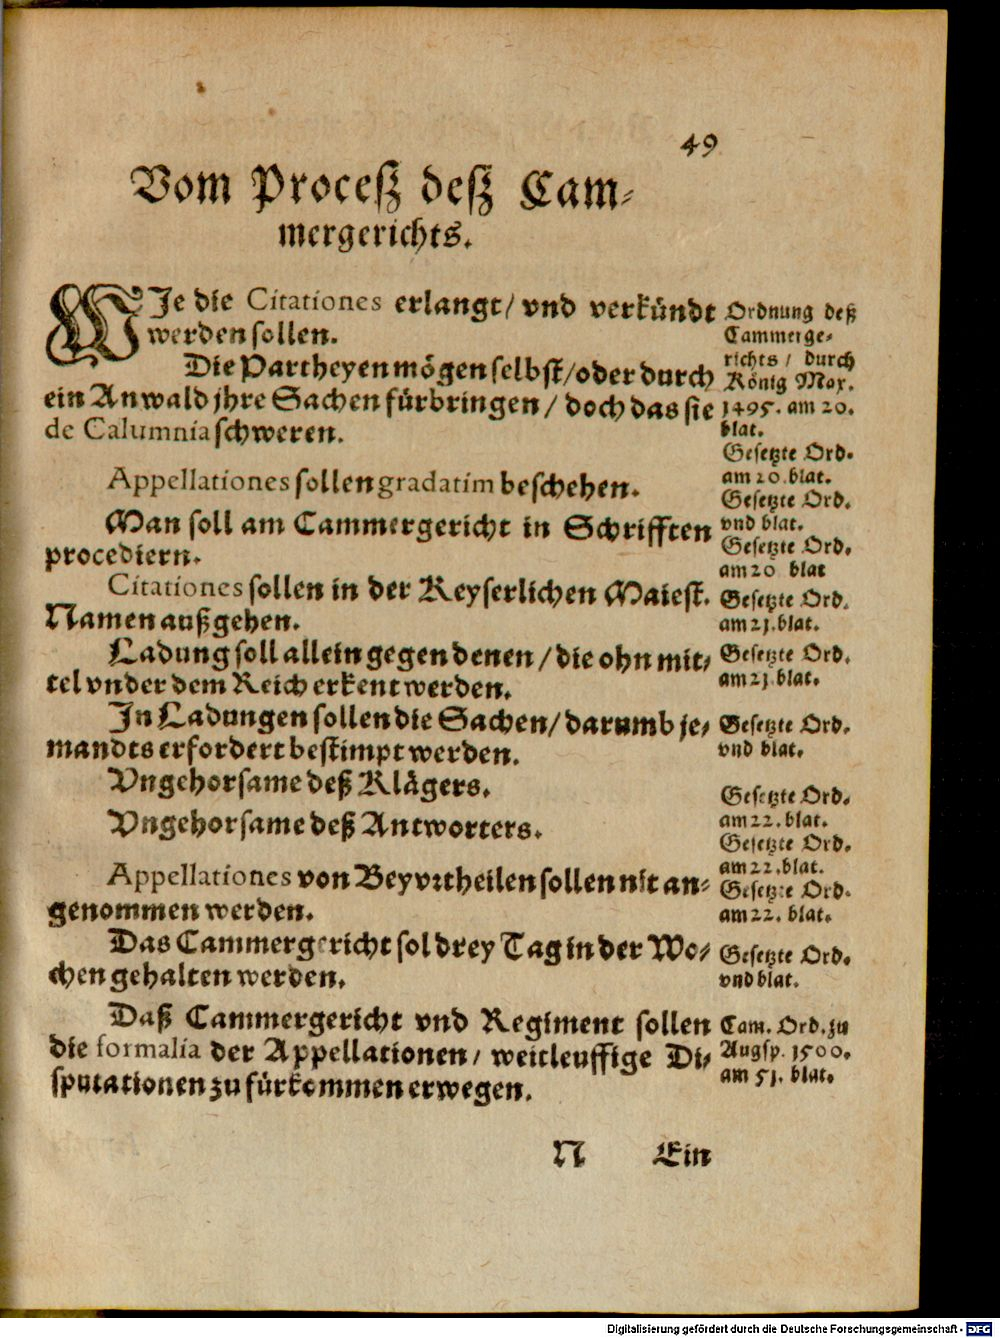 49
Vom Proceß deß Cam-
mergerichts.
WJe die Citationes erlangt/ vnd verkündt
werden sollen.
Die Partheyen mögen selbst/ oder durch
ein Anwald jhre Sachen fürbringen/ doch das sie
de Calumnia schweren.
Appellationes sollen gradatim beschehen.
Man soll am Cammergericht in Schrifften
procediern.
Citationes sollen in der Keyserlichen Maiest.
Namen außgehen.
Ladung soll allein gegen denen/ die ohn mit-
tel vnder dem Reich erkent werden.
In Ladungen sollen die Sachen/ darumb je-
mandts erfordert bestimpt werden.
Vngehorsame deß Klägers.
Vngehorsame deß Antworters.
Appellationes von Beyvrtheilen sollen nit an-
genommen werden.
Das Cammergericht sol drey Tag in der Wo-
chen gehalten werden.
Daß Cammergericht vnd Regiment sollen
die formalia der Appellationen/ weitleuffige Di-
sputationen zu fürkommen erwegen.
Ordnung deß
Cammerge-
richts/ durch
König Max.
1495. am 20.
blat.
Gesetzte Ord.
am 20. blat.
Gesetzte Ord.
vnd blat.
Gesetzte Ord.
am 20 blat
Gesetzte Ord.
am 21. blat.
Gesetzte Ord.
am 21 blat.
Gesetzte Ord.
vnd blat.
Gesetzte Ord.
am 22. blat.
Gesetzte Ord.
am 22. blat.
Gesetzte Ord.
am 22. blat.
Gesetzte Ord.
vnd blat.
Cam. Ord. zu
Augsp. 1500.
am 51. blat.
N Ein
Digitalisierung gefördert durch die Deutsche Forschungsgemeinschaft - DFG